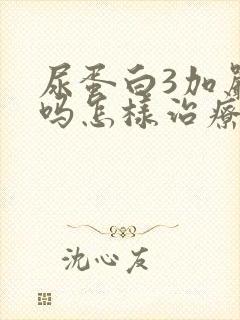 尿蛋白3加
吗怎样治疗
沈心友